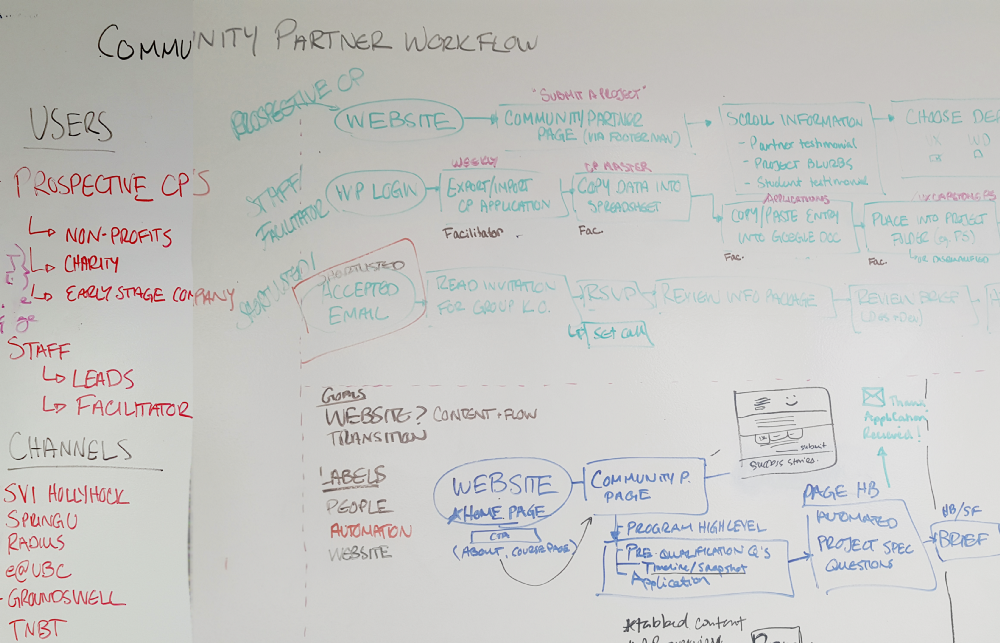 COMMUNITY PARTNER WORKFLOW
USERS
PROSPECTIVE CP'S
NON-PROFITS
CHARITY
EARLY STAGE COMPANY
STAFF
LEADS
FACILITATOR
CHANNELS
SVI HOLLYHOCK
SPRINGU
RADIUS
e@UBC
GROUNDSWELL
TNBT
PROSPECTIVE CP
WEBSITE
"SUBMIT A PROJECT"
COMMUNITY PARTNER
PAGE (VIA FOOTER NAV)
SCROLL INFORMATION
- Partner testimonial
- Project BLURBS
- Student testimonial
CHOOSE
STAFF/
FACILITATOR
WP LOGIN
WEEKLY
EXPORT/IMPORT
CP APPLICATION
Facilitator
CP MASTER
COPY DATA INTO
SPREADSHEET
Fac.
APPLICATIONS
COPY/PASTE ENTRY
INTO GOOGLE DOC
Fac.
PLACE INTO PROJECT
FOLDER
Fac.
SHORTLISTED/
SHORTLISTED
ACCEPTED
EMAIL
READ INVITATION
FOR GROUP K.O.
RSVP
SET CALL
REVIEW INFO PACKAGE
REVIEW BRIEF
(Des + Dev)
GOALS
WEBSITE? CONTENT + FLOW
TRANSITION
LABELS
PEOPLE
AUTOMATION
WEBSITE
WEBSITE
HOME PAGE
CTA
(ABOUT, COURSE PAGE)
COMMUNITY P.
PAGE
submit
success stories.
PROGRAM HIGH LEVEL
PRE-QUALIFICATION Q'S
Timeline/Snapshot
Application
Thank
Application
Received!
PAGE HB
AUTOMATED
PROJECT SPEC
QUESTIONS
HB/SF
BRIEF
tabbed content